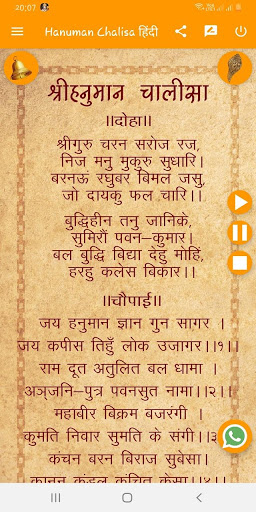 20:07
90%
Hanuman Chalisa हिंदी
श्रीहनुमान चालीसा
॥दोहा॥
श्रीगुरु चरन सरोज रज,
निज मनु मुकुरु सुधारि।
बरनऊ रघुबर बिमल जसु,
जो दायकु फल चारि।।
बुद्धिहीन तनु जानिके,
सुमिरौं पवन-कुमार।
बल बुद्धि बिद्या देहु मोहिं,
हरहु कलेस बिकार।।
॥चौपाई॥
जय हनुमान ज्ञान गुन सागर ।
जय कपीस तिहुँ लोक उजागर।।१।।
राम दूत अतुलित बल धामा ।
अञ्जनि-पुत्र पवनसुत नामा।।२।।
महाबीर बिक्रम बजरंगी ।
कुमति निवार सुमति के संगी।।३
कंचन बरन बिराज सुबेसा।
कानन कुंडल कुंचित केसा।